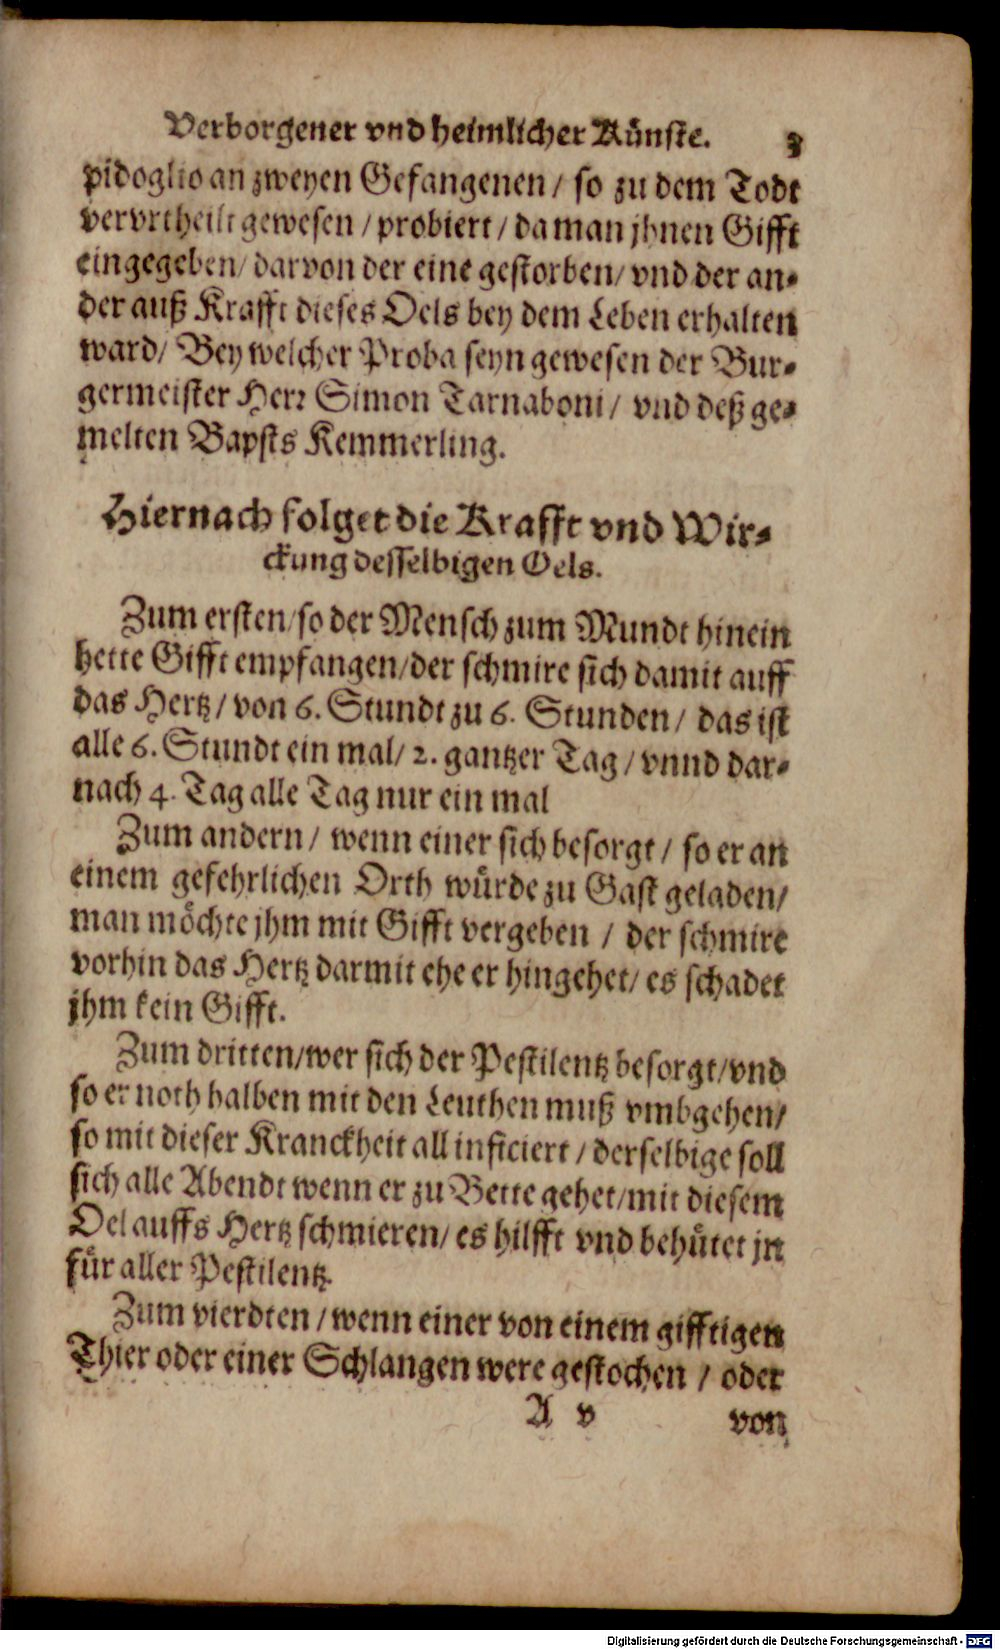 Verborgener vnd heimlicher Künste. 3
pidoglio an zweyen Gefangenen / so zu dem Todt
vervrtheilt gewesen / probiert / da man jhnen Gifft
eingegeben / darvon der eine gestorben / vnd der an-
der auß Krafft dieses Oels bey dem Leben erhalten
ward / Bey welcher Proba seyn gewesen der Bur-
germeister Herr Simon Tarnaboni / vnd deß ge-
melten Bapsts Kemmerling.
Hiernach folget die Krafft vnd Wir-
ckung desselbigen Oels.
Zum ersten / so der Mensch zum Mundt hinein
hette Gifft empfangen / der schmire sich damit auff
das Hertz / von 6. Stundt zu 6. Stunden / das ist
alle 6. Stundt ein mal / 2. gantzer Tag / vnnd dar-
nach 4. Tag alle Tag nur ein mal
Zum andern / wenn einer sich besorgt / so er an
einem gefehrlichen Orth würde zu Gast geladen /
man möchte jhm mit Gifft vergeben / der schmire
vorhin das Hertz darmit ehe er hingehet / es schadet
jhm kein Gifft.
Zum dritten / wer sich der Pestilentz besorgt / vnd
so er noth halben mit den Leuthen muß vmbgehen /
so mit dieser Kranckheit all inficiert / derselbige soll
sich alle Abendt wenn er zu Bette gehet / mit diesem
Oel auffs Hertz schmieren / es hilfft vnd behütet jn
für aller Pestilentz.
Zum vierdten / wenn einer von einem gifftigen
Thier oder einer Schlangen were gestochen / oder
A v von
Digitalisierung gefördert durch die Deutsche Forschungsgemeinschaft - DFG